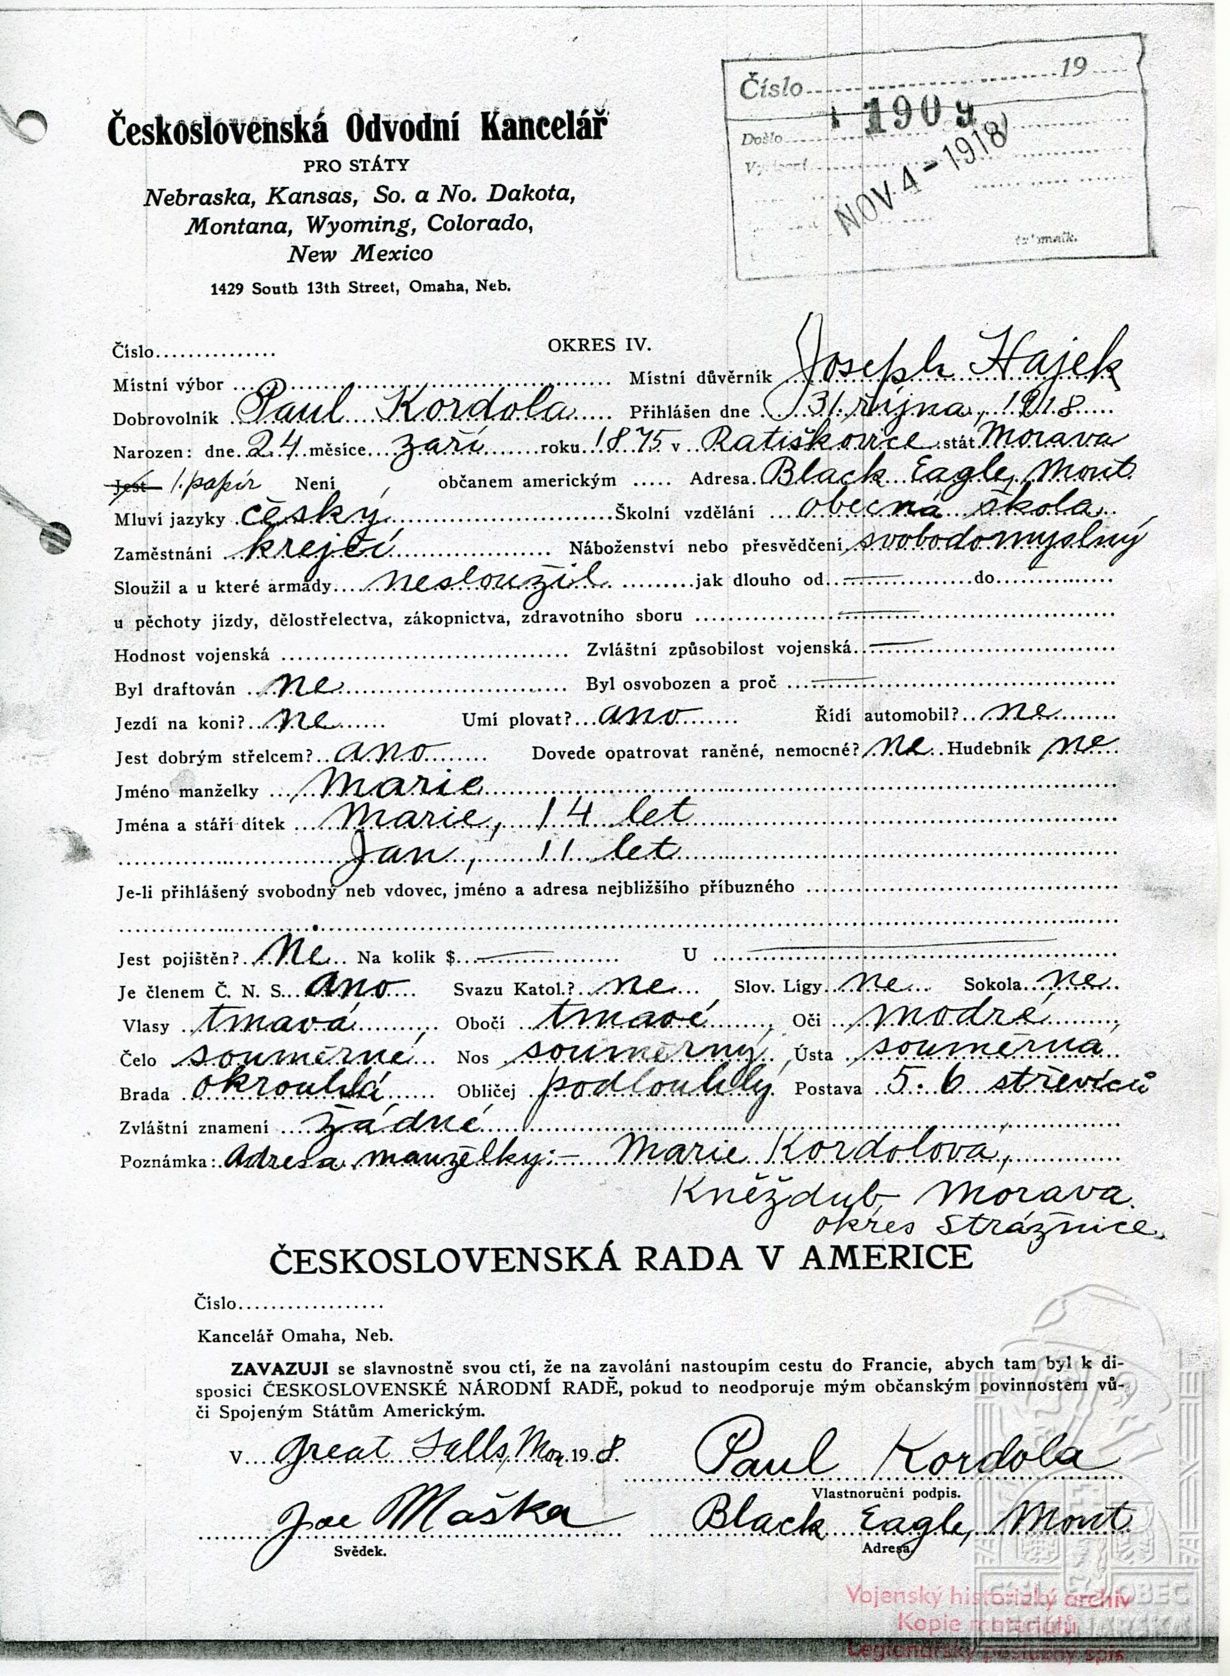 6
Číslo 19
1909
Došlo
NOV. 4 - 1918
Československá Odvodní Kancelář
PRO STÁTY
Nebraska, Kansas, So. a No. Dakota,
Montana, Wyoming, Colorado,
New Mexico
1429 South 13th Street, Omaha, Neb.
Číslo OKRES IV.
Místní výbor Místní důvěrník Joseph Hajek
Dobrovolník Paul Kordola Přihlášen dne 31 října, 1918
Narozen: dne 24 měsíce září roku 1875 v Ratiškovice stát Morava
Jest 1. papír Není občanem americkým Adresa Black Eagle, Mont.
Mluví jazyky český Školní vzdělání obecná škola
Zaměstnání krejčí Náboženství nebo přesvědčení svobodomyslný
Sloužil a u které armády nesloužil jak dlouho od do
u pěchoty jízdy, dělostřelectva, zákopnictva, zdravotního sboru
Hodnost vojenská Zvláštní způsobilost vojenská
Byl draftován ne Byl osvobozen a proč
Jezdí na koni? ne Umí plovat? ano Řídí automobil? ne
Jest dobrým střelcem? ano Dovede opatrovat raněné, nemocné? ne Hudebník ne
Jméno manželky Marie
Jména a stáří dítek Marie, 14 let
Jan, 11 let
Je-li přihlášený svobodný neb vdovec, jméno a adresa nejbližšího příbuzného
Jest pojištěn? Ne Na kolik $ U
Je členem Č. N. S. ano Svazu Katol.? ne Slov. Ligy ne Sokola ne
Vlasy tmavá, Obočí tmavé, Oči modré,
Čelo souměrné Nos souměrný, Ústa souměrna
Brada okrouhlá Obličej podlouhlý Postava 5.6 střevíců
Zvláštní znamení žádné
Poznámka: Adresa manželky:- Marie Kordolova,
Kněždub Morava.
okres Strážnice.
ČESKOSLOVENSKÁ RADA V AMERICE
Číslo
Kancelář Omaha, Neb.
ZAVAZUJI se slavnostně svou ctí, že na zavolání nastoupím cestu do Francie, abych tam byl k di-
sposici ČESKOSLOVENSKÉ NÁRODNÍ RADĚ, pokud to neodporuje mým občanským povinnostem vů-
či Spojeným Státům Americkým.
V Great Falls, Mon 1918. Paul Kordola
Vlastnoruční podpis.
Joe Maška Black Eagle, Mont.
Svědek. Adresa.
Vojenský historický archiv
Kopie materiálů
Legionářský poslužný spis
OBEC
LEGIONÁŘSKÁ